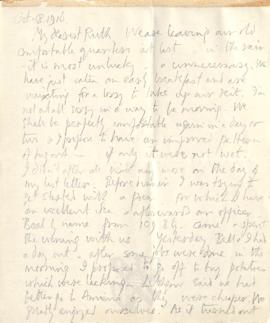 Oct 18 1916.
My dearest Ruth We are leaving our old
comfortable quarters at last in the rain
- it is most unlucky unnecessary. We
have just eaten an early breakfast and are
waiting for a lorry to take up our kit. I'm
not at all sorry in a way to be moving. We
shall be perfectly comfortable again in a day or
two I propose to have an improved pattern
of - if only it were not wet.
I didn't after all write any more on the day of
my last letter. Before I was trying to
get started with a for which I have
an excellent idea afterwards an officer
by name from came & spent
the evening with us Yesterday Bell & I had
a day out - after some in the
morning I proposed to go off to buy potatoes
which were lacking. said we had
better go to Amiens as they were cheaper. We
greatly enjoyed ourselves. As it turned out